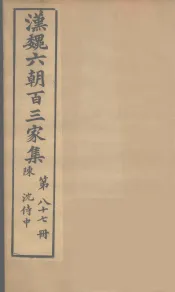 漢魏六朝百三家集
陳 沈侍中
第八十七冊